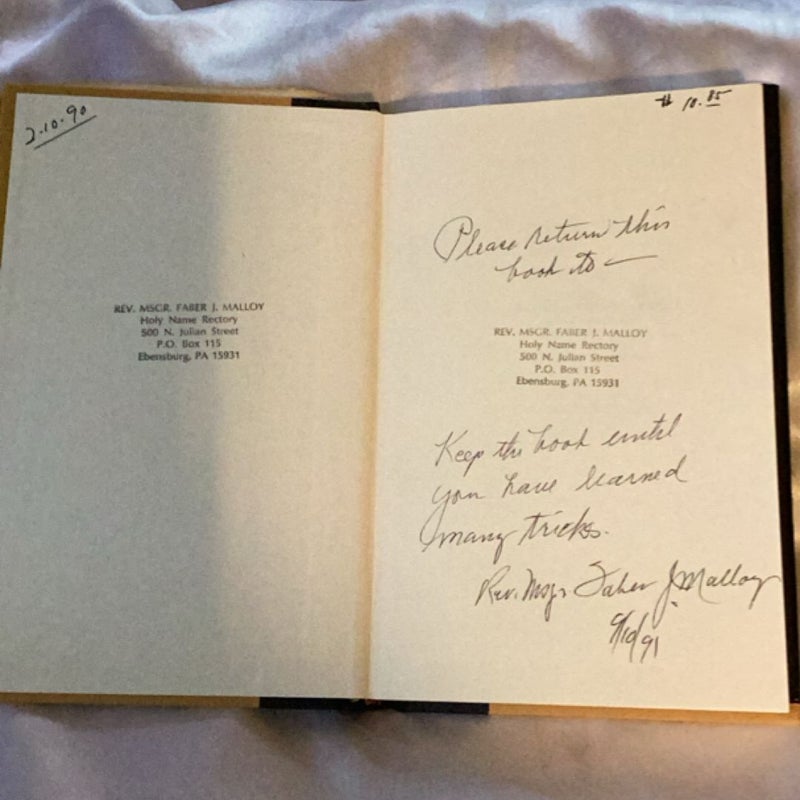 2.10.90
REV. MSGR. FABER J. MALLOY
Holy Name Rectory
500 N. Julian Street
P.O. Box 115
Ebensburg, PA 15931
$ 10.85
Please return this
book to —
REV. MSGR. FABER J. MALLOY
Holy Name Rectory
500 N. Julian Street
P.O. Box 115
Ebensburg, PA 15931
Keep the book until
you have learned
many tricks.
Rev. Msgr. Faber J. Malloy
9/10/91